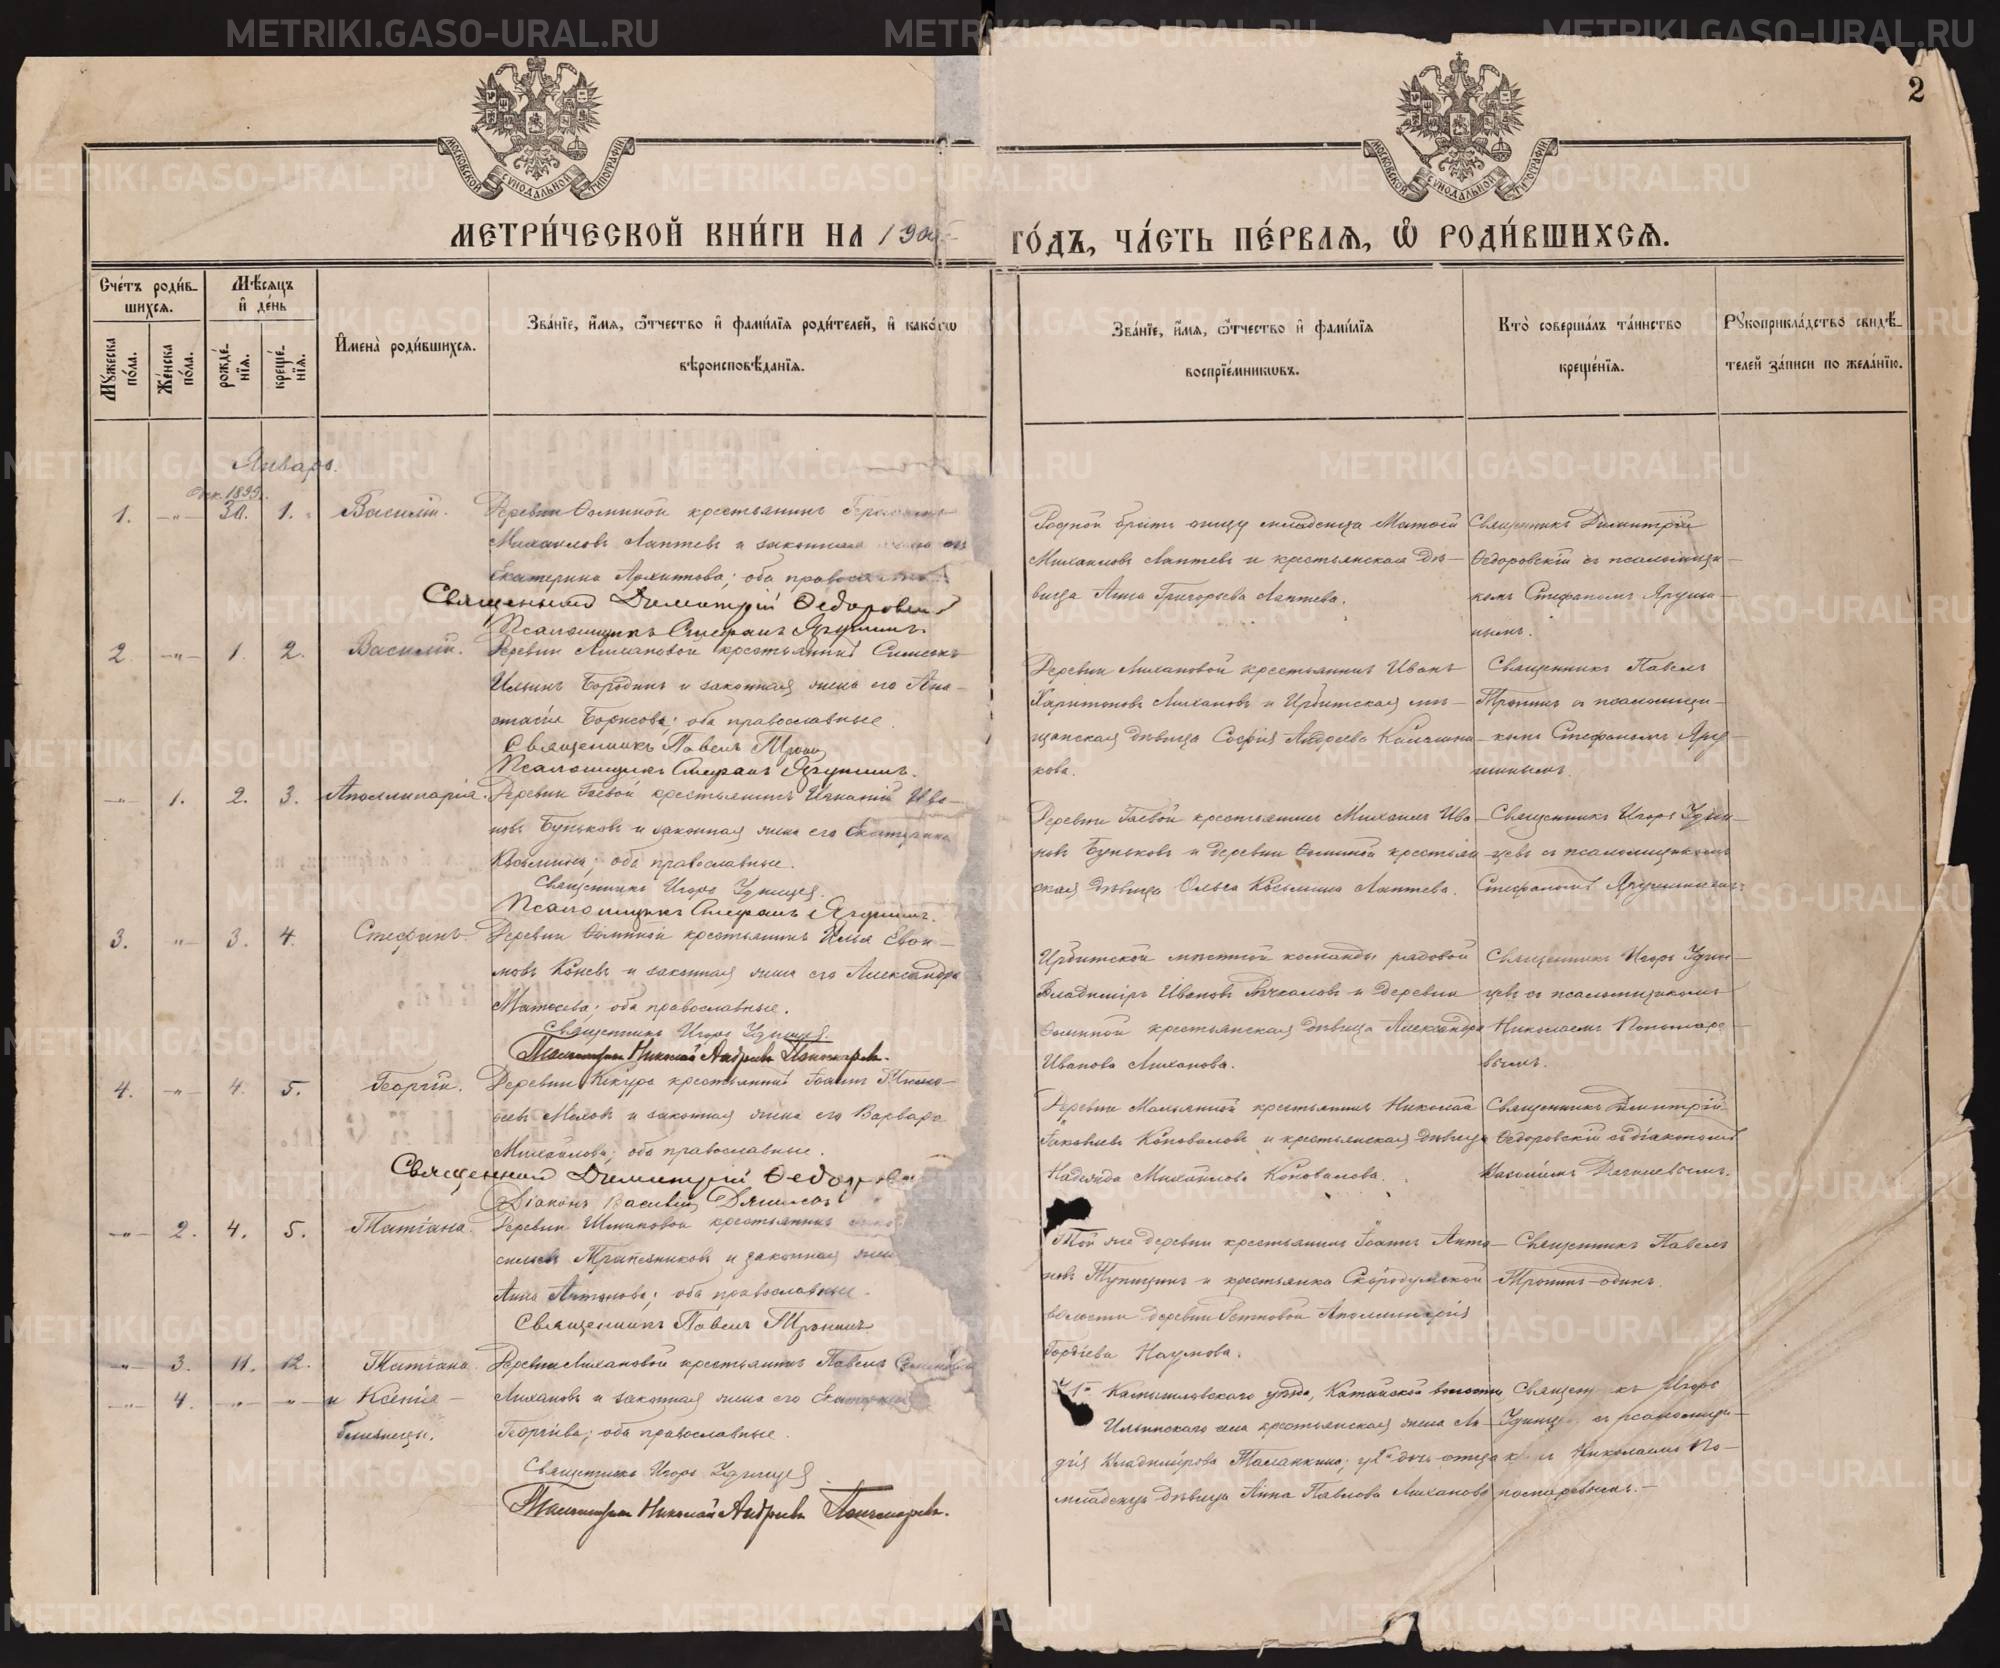 2
МОСКОВСКОЙ СѴНОДАЛЬНОЙ ТИПОГРАФІИ
МОСКОВСКОЙ СѴНОДАЛЬНОЙ ТИПОГРАФІИ
МЕТРИ́ЧЕСКОЙ КНИ́ГИ НА 1900 ГО́ДЪ, ЧА́СТЬ ПЕ́РВАЯ, Ѡ҆ РОДИ́ВШИХСЯ.
Сче́тъ роди́в-
шихся.
Мꙋжеска по́ла.
Же́нска по́ла.
Мѣ́сяцъ
и҆ де́нь
рожде́нїя.
креще́нїя.
И҆мена̀ роди́вшихся.
Зва́нїе, и҆́мя, ѻ҆́тчество и҆ фами́лїя роди́телей, и҆ како́гѡ
вѣроисповѣ́данїя.
Зва́нїе, и҆́мя, ѻ҆́тчество и҆ фами́лїя
воспрїе́мникѡвъ.
Кто̀ соверша́лъ та́инство
креще́нїя.
Рꙋкоприкла́дство свидѣ́-
телей за́писи по жела́нїю.
Январь.
Дек. 1899.
1. -„- 30. 1. Василій.
Деревни Ѳоминой крестьянинъ
Михаиловъ Лаптевъ и законная жена его
Екатерина Архипова; оба православные.
Священникъ Димитрій Ѳедоровскій
Псаломщикъ Стефанъ Ярушинъ.
Родной братъ отцу младенца Матѳей
Михаиловъ Лаптевъ и крестьянская дѣ-
вица Анна Григорьева Лаптева.
Священникъ Димитрій
Ѳедоровскій съ псаломщи-
комъ Стефаномъ Яруши-
нымъ.
2. -„- 1. 2. Василій.
Деревни Лихановой крестьянинъ Симеонъ
Ильинъ Бородинъ и законная жена его Ана-
стасія Борисова; оба православные.
Священникъ Павелъ Тронинъ
Псаломщикъ Стефанъ Ярушинъ.
Деревни Лихановой крестьянинъ Иванъ
Харитоновъ Лихановъ и Ирбитская мѣ-
щанская дѣвица Софія Андреева
кова.
Священникъ Павелъ
Тронинъ съ псаломщи-
комъ Стефаномъ Яру-
шинымъ.
-„- 1. 2. 3. Аполлинарія.
Деревни Гаевой крестьянинъ Игнатій Ива-
новъ Буньковъ и законная жена его Екатерина
Козьмина; оба православные.
Священникъ Игорь Удинцев.
Псаломщикъ Стефанъ Ярушинъ.
Деревни Гаевой крестьянинъ Михаилъ Ива-
новъ Буньковъ и деревни Ѳоминой крестьян-
ская дѣвица Ольга Козьмина Лаптева.
Священникъ Игорь Удин-
цевъ съ псаломщикомъ
Стефаномъ Ярушинымъ.
3. „- 3. 4. Стефанъ.
Деревни Ѳоминой крестьянинъ Илья Евѳи-
мовъ Коневъ и законная жена его Александра
Матѳеева; оба православные.
Священникъ Игорь Удинцев.
Псаломщикъ Николай Андреевъ Пономаревъ.
Ирбитской мѣстной команды рядовой
Владиміръ Ивановъ и деревни
Ѳоминой крестьянская дѣвица Александра
Иванова Лиханова.
Священникъ Игорь Удин-
цевъ съ псаломщикомъ
Николаемъ Пономаре-
вымъ.
4. -„- 4. 5. Георгій.
Деревни Кекура крестьянинъ Іоаннъ Тимо-
ѳеевъ и законная жена его Варвара
Михайлова; оба православные.
Священникъ Димитрій Ѳедоровскій
Діаконъ Василій
Деревни крестьянинъ Николай
Іаковлевъ Коноваловъ и крестьянская дѣвица
Надежда Михайлова Коновалова.
Священникъ Димитрій
Ѳедоровскій съ діакономъ
-„- 2. 4. 5. Татіана.
Деревни крестьянинъ
Трапезниковъ и законная жена
Анна Антонова; оба православные.
Священникъ Павелъ Тронинъ
Той же деревни крестьянинъ Іоаннъ Анто-
новъ Тупицинъ и крестьянка Скородумской
волости деревни Аполлинарія
Гордіева Наумова.
Священникъ Павелъ
Тронинъ - одинъ.
-„- 3. 11. 12. Татіана
-„- 4. -„- -„- и Ксенія -
близнецы.
Деревни Лихановой крестьянинъ Павелъ
Лихановъ и законная жена его Екатерина
Георгіева; оба православные.
Священникъ Игорь Удинцев.
Псаломщикъ Николай Андреевъ Пономаревъ.
Камышловскаго уѣзда, Катайской волости,
Ильинскаго села крестьянская жена Ли-
дія Владимірова Таланкина; дочь отца
младенцу дѣвица Анна Павлова Лиханова
Игорь
съ псаломщи-
Николаемъ По-
номаревымъ. -